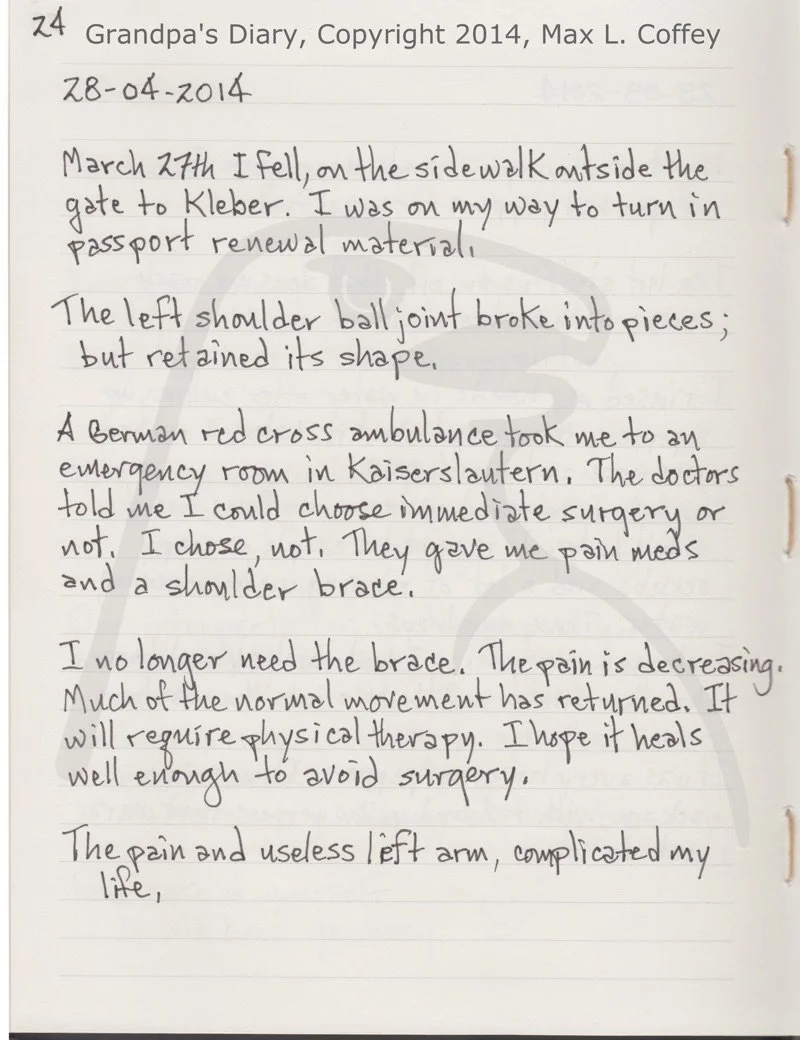 24 Grandpa's Diary, Copyright 2014, Max L. Coffey
28-04-2014
March 27th I fell, on the sidewalk outside the
gate to Kleber. I was on my way to turn in
passport renewal material.
The left shoulder ball joint broke into pieces;
but retained its shape.
A German red cross ambulance took me to an
emergency room in Kaiserslautern. The doctors
told me I could choose immediate surgery or
not. I chose, not. They gave me pain meds
and a shoulder brace.
I no longer need the brace. The pain is decreasing.
Much of the normal movement has returned. It
will require physical therapy. I hope it heals
well enough to avoid surgery.
The pain and useless left arm, complicated my
life,